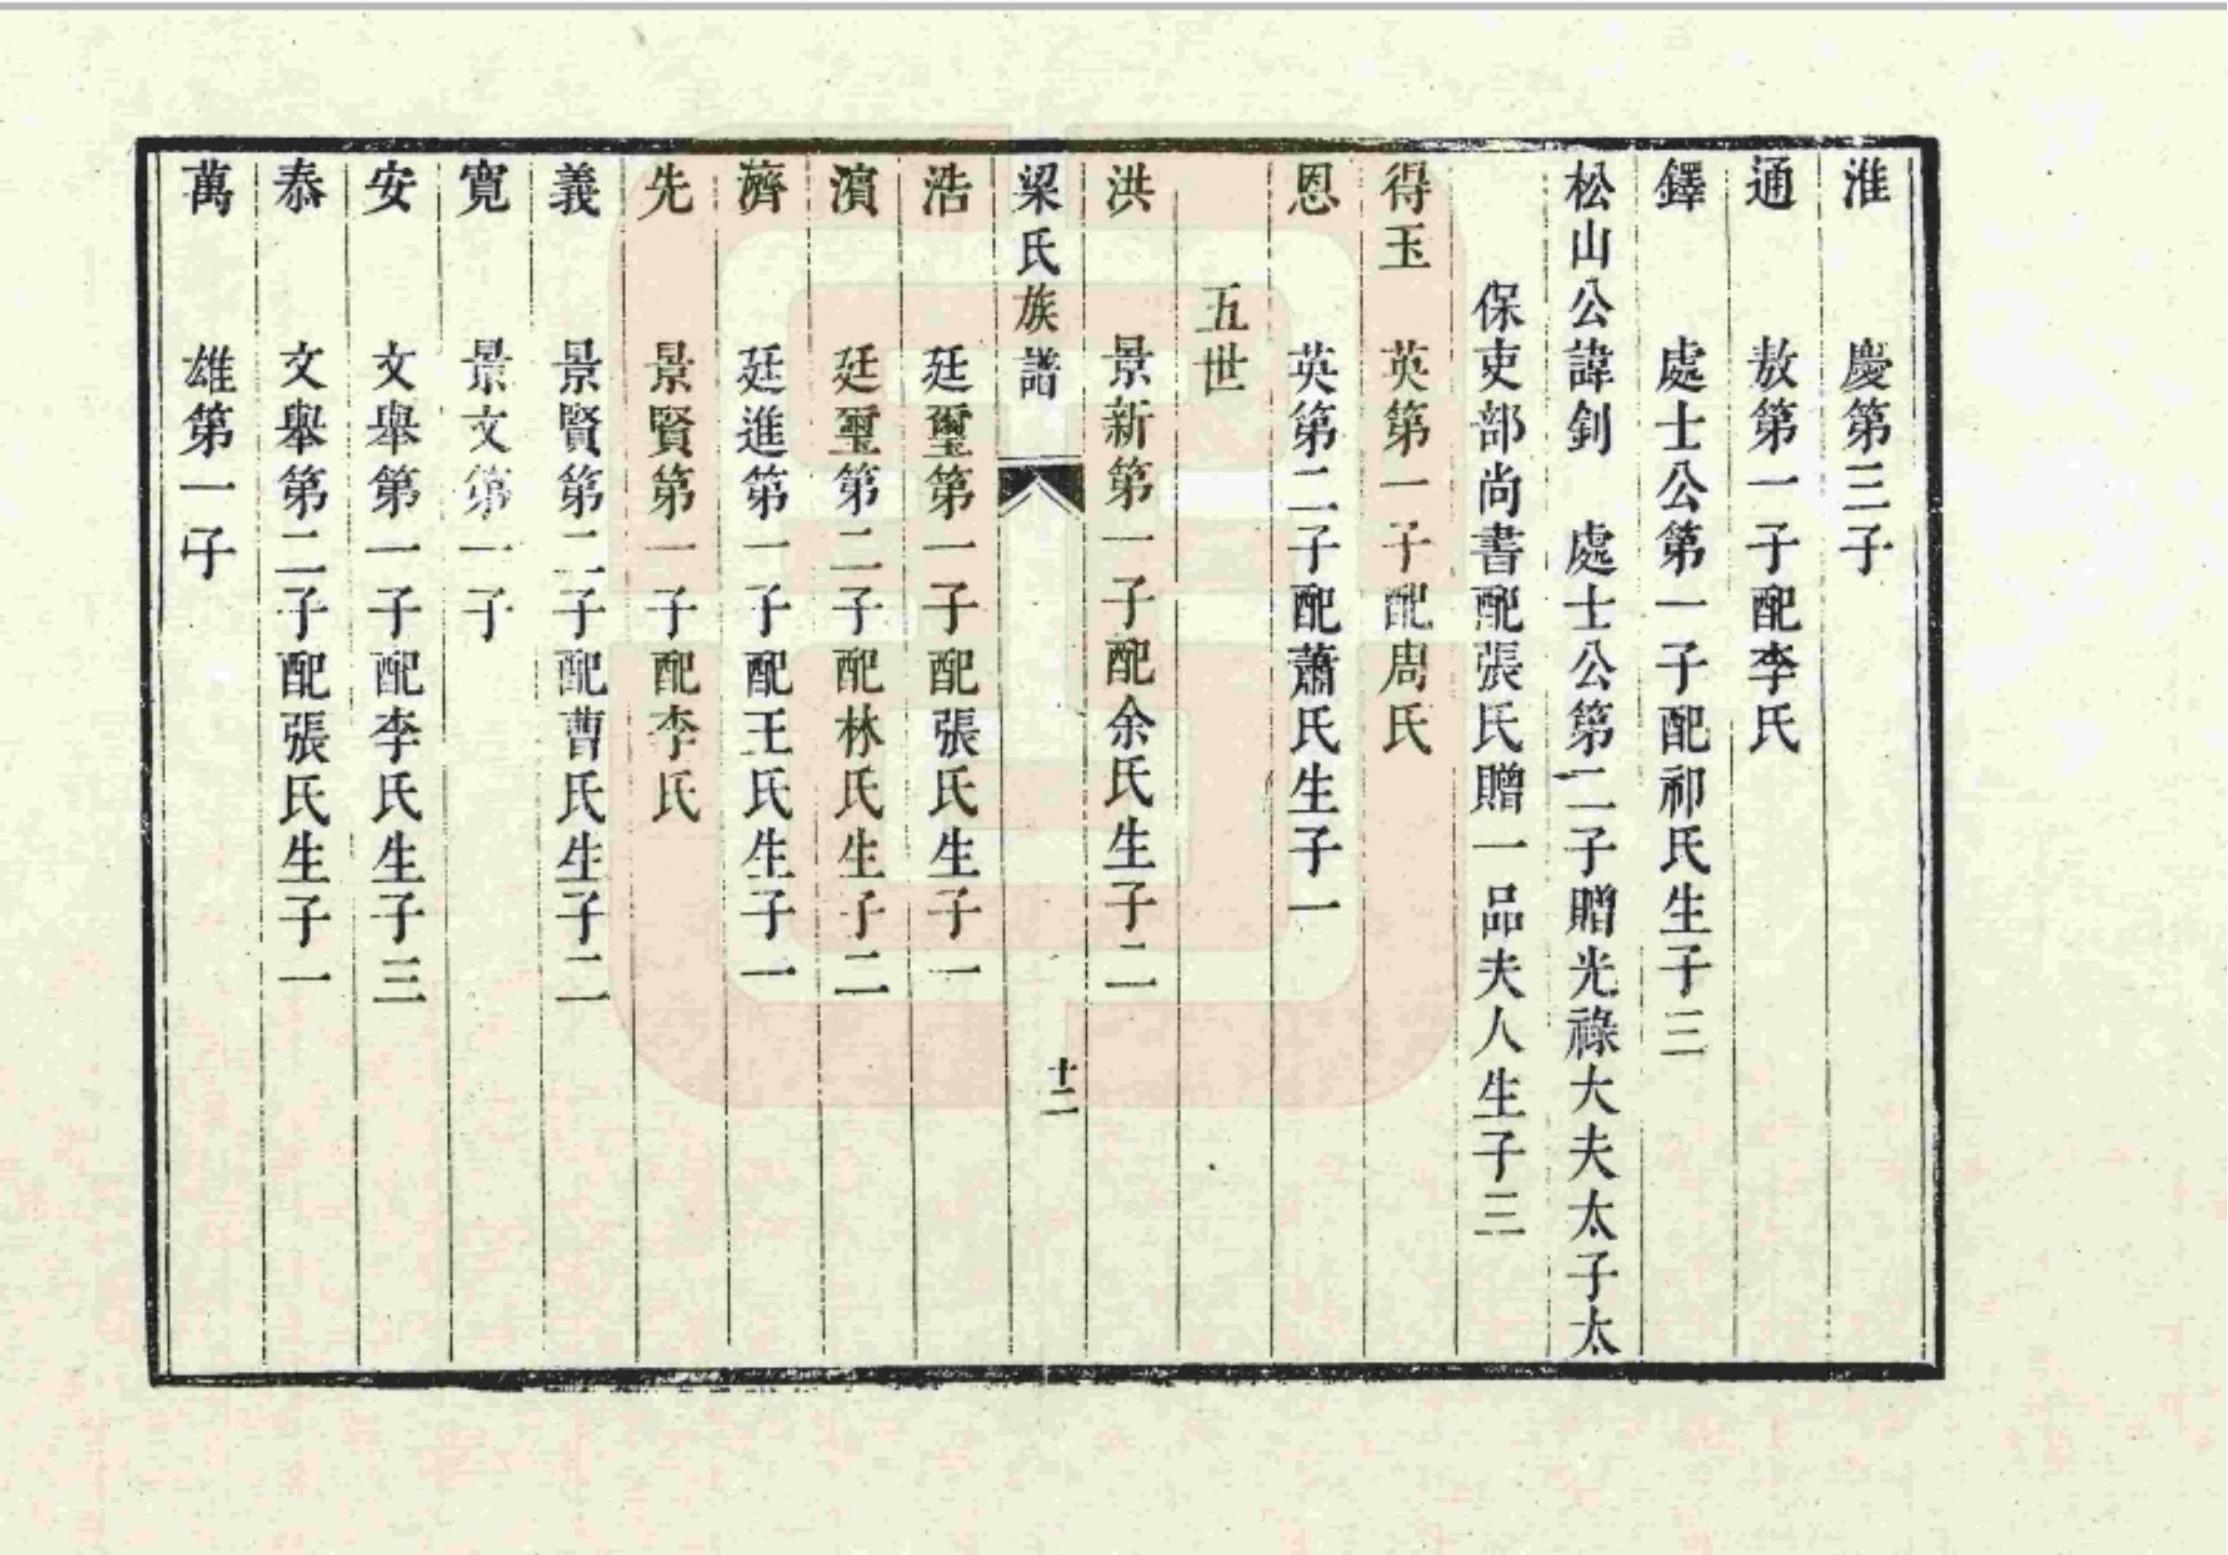 淮　慶第三子
通　敖第一子配李氏
鐸　處士公第一子配祁氏生子三
松山公諱釗　處士公第二子贈光祿大夫太子太
保吏部尚書配張氏贈一品夫人生子三
得玉　英第一子配周氏
恩　英第二子配蕭氏生子一
五世
洪　景新第一子配余氏生子二
梁氏族譜　十二
浩　廷璽第一子配張氏生子一
濵　廷璽第二子配林氏生子二
濟　廷進第一子配王氏生子一
先　景賢第一子配李氏
義　景賢第二子配曹氏生子二
寛　景文第一子
安　文舉第一子配李氏生子三
泰　文舉第二子配張氏生子一
萬　雄第一子